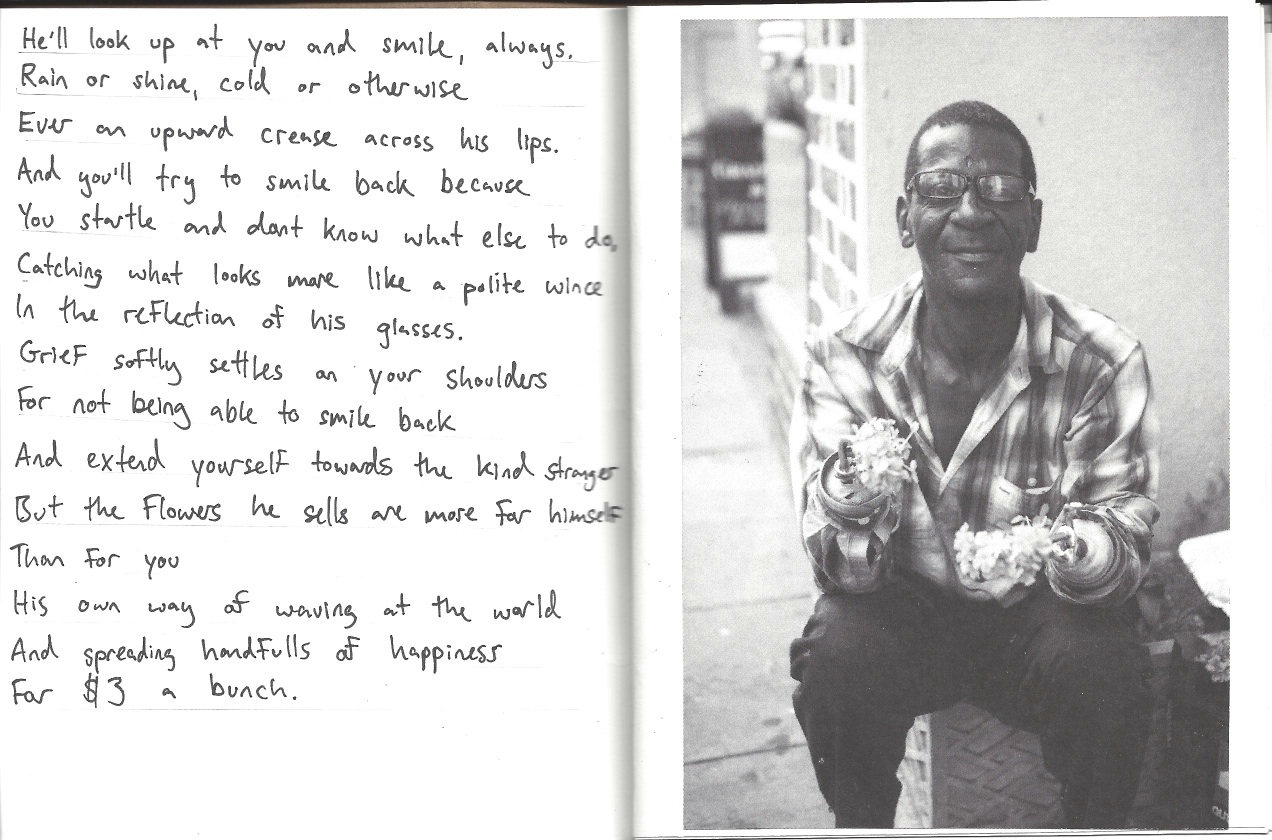 He'll look up at you and smile, always.
Rain or shine, cold or otherwise
Ever an upward crease across his lips.
And you'll try to smile back because
You startle and dont know what else to do,
Catching what looks more like a polite wince
In the reflection of his glasses.
Grief softly settles on your shoulders
For not being able to smile back
And extend yourself towards the kind stranger
But the flowers he sells are more for himself
Than for you
His own way of waving at the world
And spreading handfulls of happiness
For $3 a bunch.